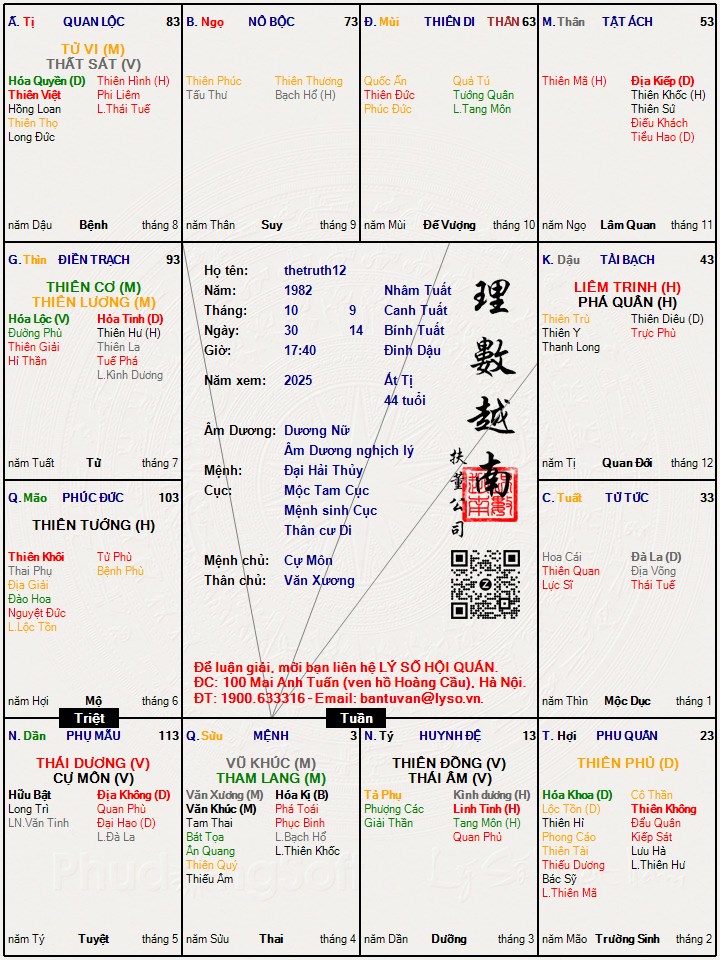 Ấ. Tị QUAN LỘC 83
TỬ VI (M)
THẤT SÁT (V)
Hóa Quyền (D) Thiên Hình (H)
Thiên Việt Phi Liêm
Hồng Loan L.Thái Tuế
Thiên Thọ
Long Đức
năm Dậu Bệnh tháng 8
B. Ngọ NÔ BỘC 73
Thiên Phúc Thiên Thương
Tấu Thư Bạch Hổ (H)
năm Thân Suy tháng 9
Đ. Mùi THIÊN DI THÂN 63
Quốc Ấn Quả Tú
Thiên Đức Tướng Quân
Phúc Đức L.Tang Môn
năm Mùi Đế Vượng tháng 10
M. Thân TẬT ÁCH 53
Thiên Mã (H) Địa Kiếp (D)
Thiên Khốc (H)
Thiên Sứ
Điếu Khách
Tiểu Hao (D)
năm Ngọ Lâm Quan tháng 11
G. Thìn ĐIỀN TRẠCH 93
THIÊN CƠ (M)
THIÊN LƯƠNG (M)
Hóa Lộc (V) Hỏa Tinh (D)
Đường Phù Thiên Hư (H)
Thiên Giải Thiên La
Hỉ Thần Tuế Phá
L.Kình Dương
năm Tuất Tử tháng 7
Họ tên: thetruth12
Năm: 1982 Nhâm Tuất
Tháng: 10 9 Canh Tuất
Ngày: 30 14 Bính Tuất
Giờ: 17:40 Đinh Dậu
Năm xem: 2025 Ất Tị
44 tuổi
Âm Dương: Dương Nữ
Âm Dương nghịch lý
Mệnh: Đại Hải Thủy
Cục: Mộc Tam Cục
Mệnh sinh Cục
Thân cư Di
Mệnh chủ: Cự Môn
Thân chủ: Văn Xương
理數越南
扶董公司
Để luận giải, mời bạn liên hệ LÝ SỐ HỘI QUÁN.
ĐC: 100 Mai Anh Tuấn (ven hồ Hoàng Cầu), Hà Nội.
ĐT: 1900.633316 - Email: bantuvan@lyso.vn.
K. Dậu TÀI BẠCH 43
LIÊM TRINH (H)
PHÁ QUÂN (H)
Thiên Trù Thiên Diêu (D)
Thiên Y Trực Phù
Thanh Long
năm Tị Quan Đới tháng 12
Q. Mão PHÚC ĐỨC 103
THIÊN TƯỚNG (H)
Thiên Khôi Tử Phù
Thai Phụ Bệnh Phù
Địa Giải
Đào Hoa
Nguyệt Đức
L.Lộc Tồn
năm Hợi Mộ tháng 6
C. Tuất TỬ TỨC 33
Hoa Cái Đà La (D)
Thiên Quan Địa Võng
Lực Sĩ Thái Tuế
năm Thìn Mộc Dục tháng 1
Triệt
Tuần
N. Dần PHỤ MẪU 113
THÁI DƯƠNG (V)
CỰ MÔN (V)
Hữu Bật Địa Không (D)
Long Trì Quan Phù
LN.Văn Tinh Đại Hao (D)
L.Đà La
năm Tý Tuyệt tháng 5
Q. Sửu MỆNH 3
VŨ KHÚC (M)
THAM LANG (M)
Văn Xương (M) Hóa Kị (B)
Văn Khúc (M) Phá Toái
Tam Thai Phục Binh
Bát Tọa L.Bạch Hổ
Ân Quang L.Thiên Khốc
Thiên Quý
Thiếu Âm
năm Sửu Thai tháng 4
N. Tý HUYNH ĐỆ 13
THIÊN ĐỒNG (V)
THÁI ÂM (V)
Tả Phụ Kình dương (H)
Phượng Các Linh Tinh (H)
Giải Thần Tang Môn (H)
Quan Phủ
năm Dần Dưỡng tháng 3
T. Hợi PHU QUÂN 23
THIÊN PHỦ (D)
Hóa Khoa (D) Cô Thần
Lộc Tồn (D) Thiên Không
Thiên Hỉ Đẩu Quân
Phong Cáo Kiếp Sát
Thiên Tài Lưu Hà
Thiếu Dương L.Thiên Hư
Bác Sỹ
L.Thiên Mã
năm Mão Trường Sinh tháng 2